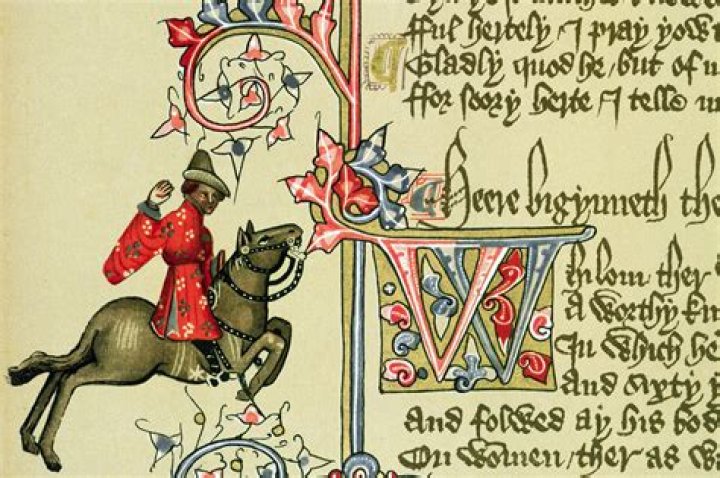 fful hertely / I pray yow
Gladly quod he, but of
ffor soory herte / I telle
Heere bigynneth the
Whilom ther
A worthy kn
In which he
And sixty y
And folwed ay his bod
On women / ther as wa